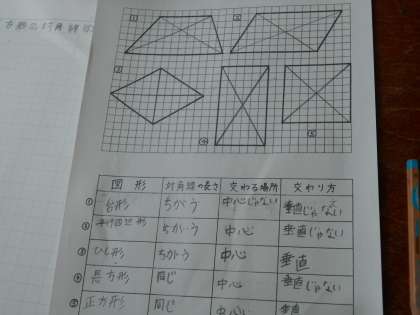 ① ②
③
④ ⑤
図形 対角線の長さ 交わる場所 交わり方
① 台形 ちがう 中心じゃない 垂直じゃない
② 平行四辺形 ちがう 中心 垂直じゃない
③ ひし形 ちがう 中心 垂直
④ 長方形 同じ 中心 垂直じゃない
⑤ 正方形 同じ 中心 垂直